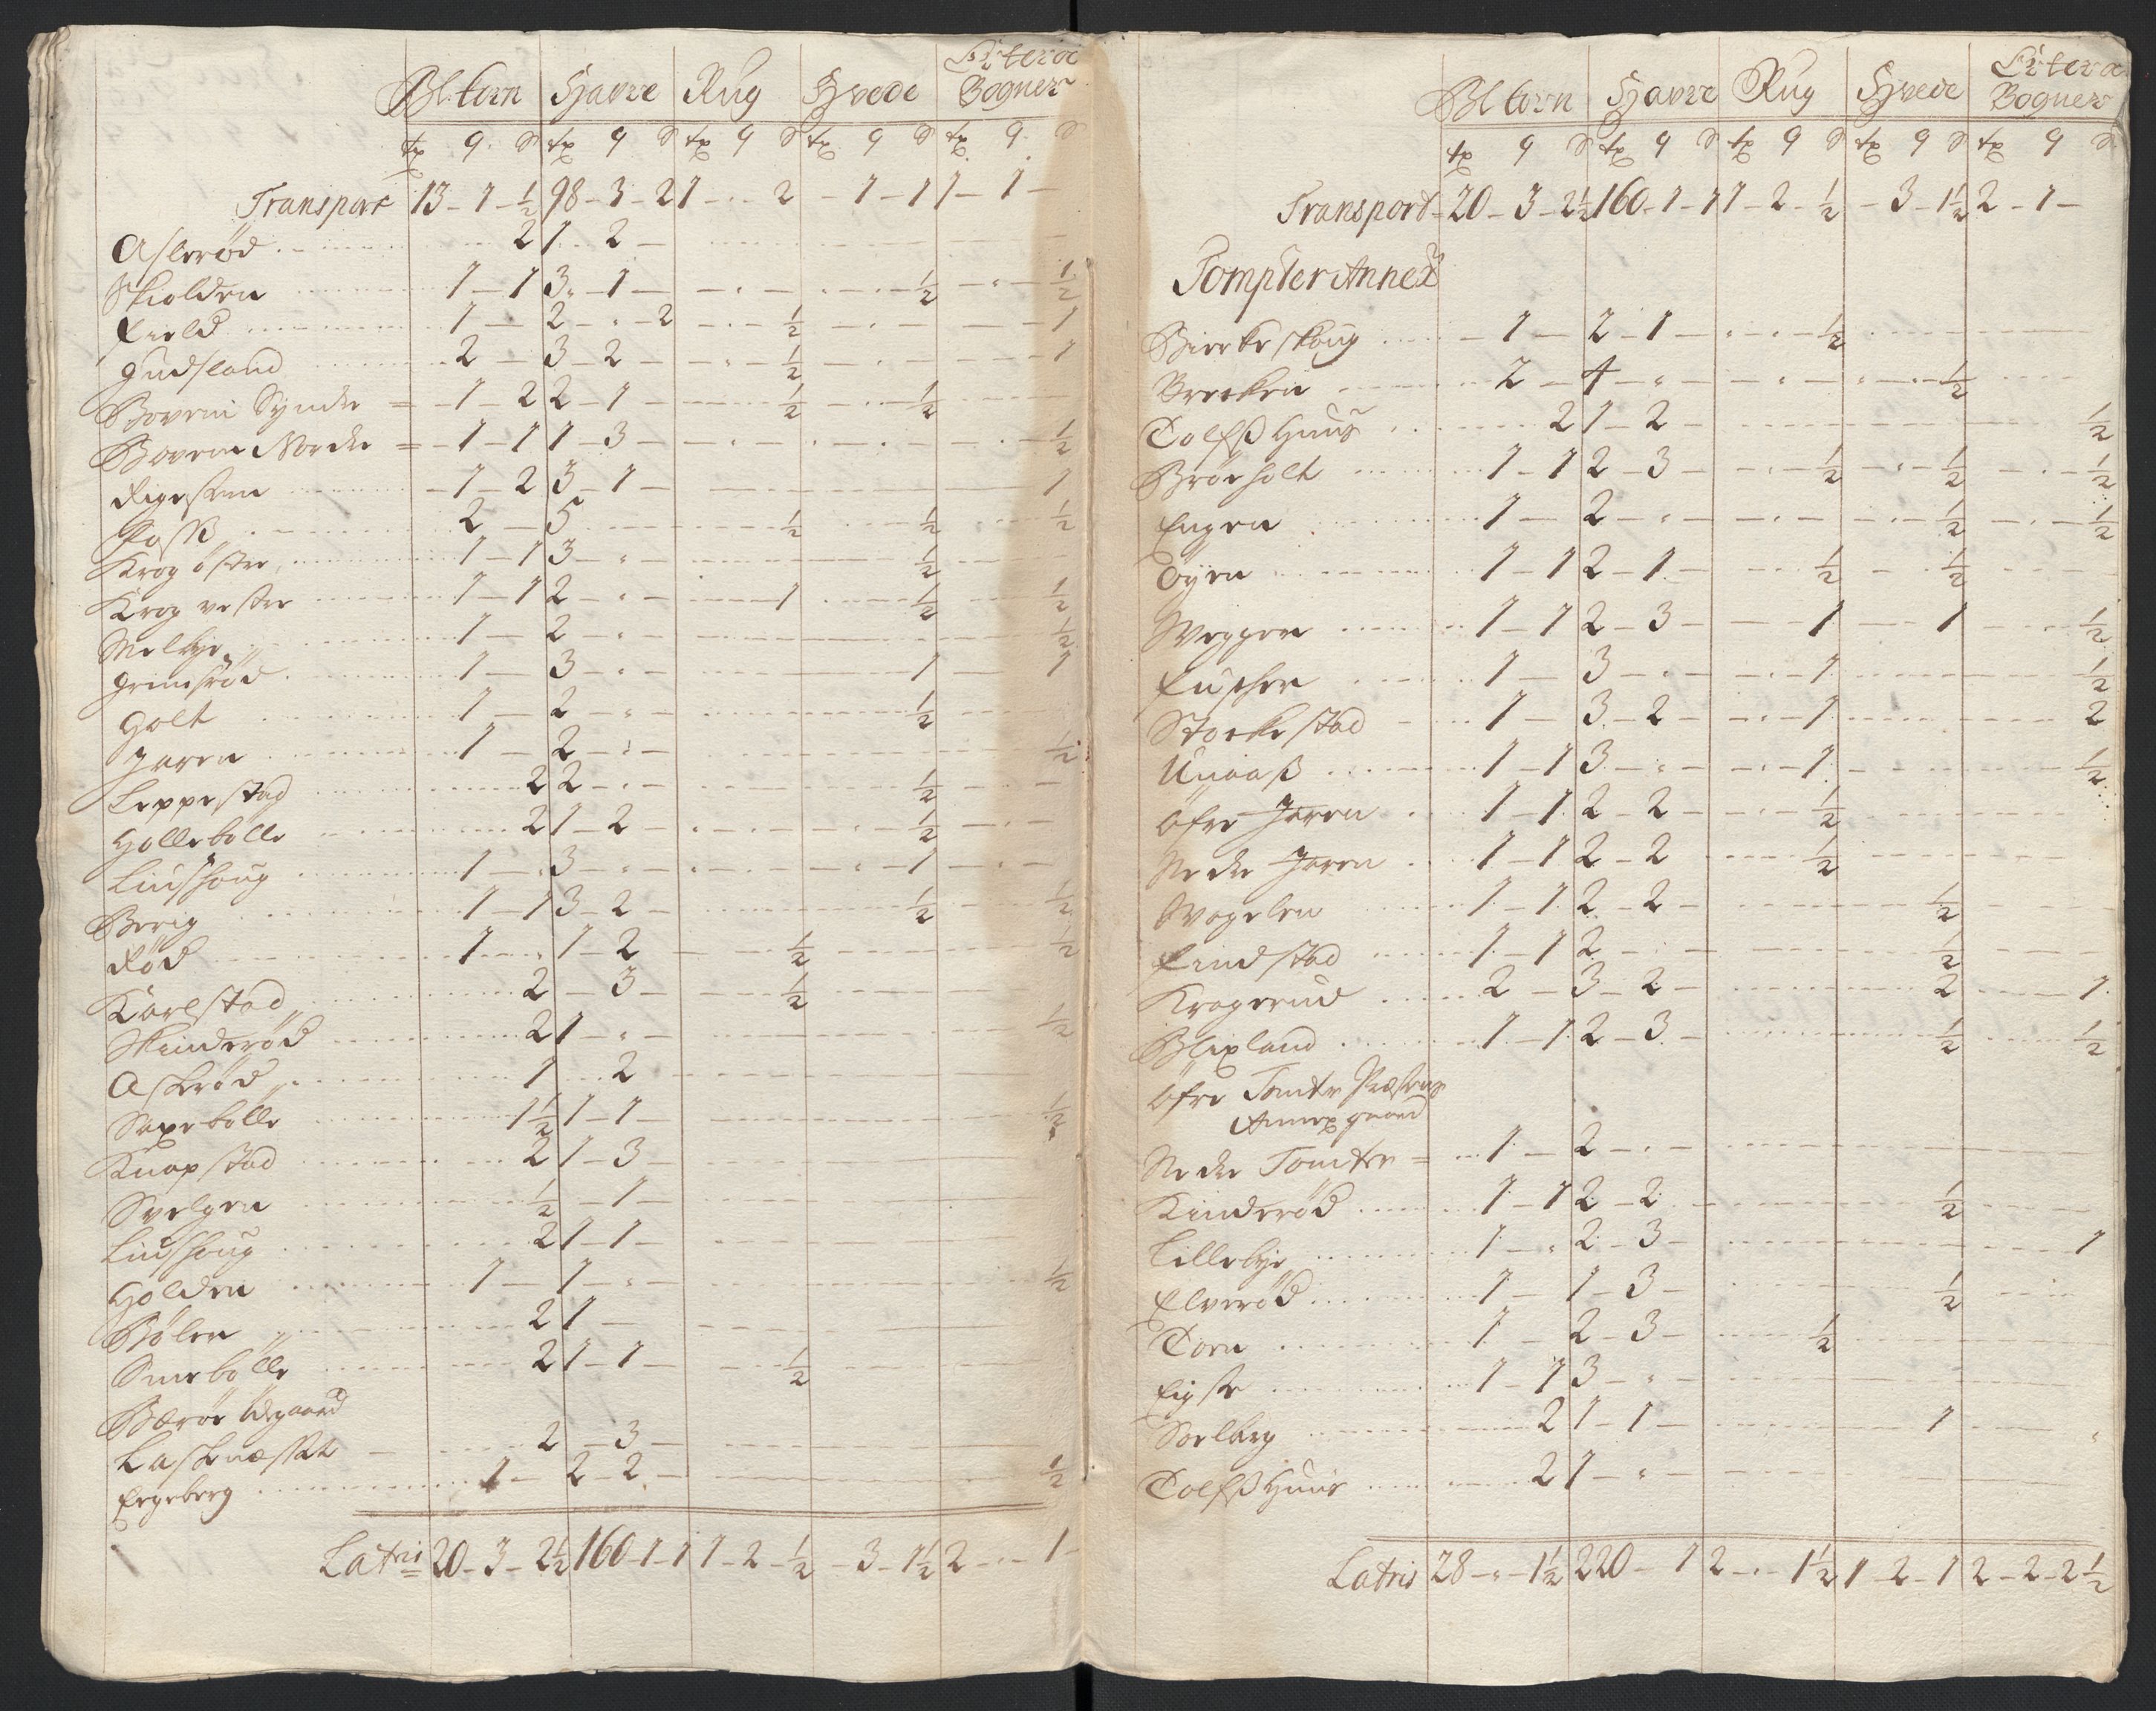 Bl. Korn Havre Rug Hvede Erter oc Bogner
tø q S tø q S tø q S tø q S tø q S
Transport 13 - 1 - ½ 98 - 3 - 2 1 - - 2 - 1 - 1 1 - 1 -
Aslerød 2 1 2 -
Skiolden 1 - 1 3 - 1 - ½ ½
Field 1 - 2 - - 2 ½ 1
Gudsland 2 3 - 2 - ½ 1
Boveni Syndre = 1 - 2 2 - 1 - ½ ½
Boveni Nordre = 1 - 1 1 - 3 - ½
Rigesten 1 - 2 3 - 1 - 1
Foss 2 - 5 ½ ½ ½
Krog østre 1 - 1 3 - ½
Krog vestre 1 - 1 2 - 1 ½ ½
Melbye 1 - 2 - ½
Grimsrød 1 - 3 - 1 1
Holt 1 - 2 - ½
Jaren 1 - 2 - ½
Leppestad 2 2 - ½
Hollebølle 2 1 - 2 - ½
Lindshoug 1 - 3 - 1
Berig 1 - 1 3 - 2 - ½ ½
Rød 1 1 - 2 - ½ ½
Karlstad 2 - 3 - ½
Skinderød 2 1 - ½
Askerød 1 2
Saxebølle 1½ 1 - 1 - ½
Knapstad 2 1 - 3 -
Svelgen ½ - 1 -
Lindshoug 2 1 - 1 -
Holden 1 - 1 - ½
Bølen 2 1 -
Smebølle 2 1 - 1 - ½
Berøe Ødegaard
Laskenæsset - 2 - 3 -
Ergeberg 1 - 2 - 2 - ½
Latris 20 - 3 - 2½ 160 - 1 - 1 1 - 2 - ½ - 3 - 1½ 2 - - 1 -
Bl Korn Havre Rug Hvede Erter oc Bogner
tø q S tø q S tø q S tø q S tø q S
Transport - 20 - 3 - 2½ 160 - 1 - 1 1 - 2 - ½ - 3 - 1½ 2 - 1 -
Tompter Annex
Bierkeskoug 1 - 2 - 1 - ½
Brecken 2 - 4 - ½
Tolfshuus 2 1 - 2 - ½
Brøeholt 1 - 1 2 - 3 - ½ ½ ½
Engen 1 - 2 - ½ ½
Øyen 1 - 1 2 - 1 - ½ ½
Weggere 1 - 1 2 - 3 - 1 1 ½
Fuscher 1 - 3 - 1 ½
Stockestad 1 - 3 - 2 - 1 2
Unaas 1 - 1 3 - 1 ½
Øfre Jaren 1 - 1 2 - 2 - ½
Nedre Jaren 1 - 1 2 - 2 ½
Wogelen 1 - 1 2 - 2 - ½
Findstad 1 - 1 2 - ½
Kragerud 2 - 3 - 2 - 2 1
Blixland 1 - 1 2 - 3 - ½ ½
Øfre Tomter Præstens
Annexgaard
Nedre Tomter = 1 - 2 - -
Kinderød 1 - 1 2 - 2 ½
Lillebye 1 - 2 - 3 - 1
Elverød 1 - 1 - 3 - ½
Torn 1 - 2 - 3 - ½
Eigste 1 - 1 3 -
Soelberg 2 1 - 1 - 1
Tolfshuus 2 1 -
Latris 28 - - 1½ 220 - 1 2 - - 1½ 1 - 2 - 1 2 - 2 - 2½